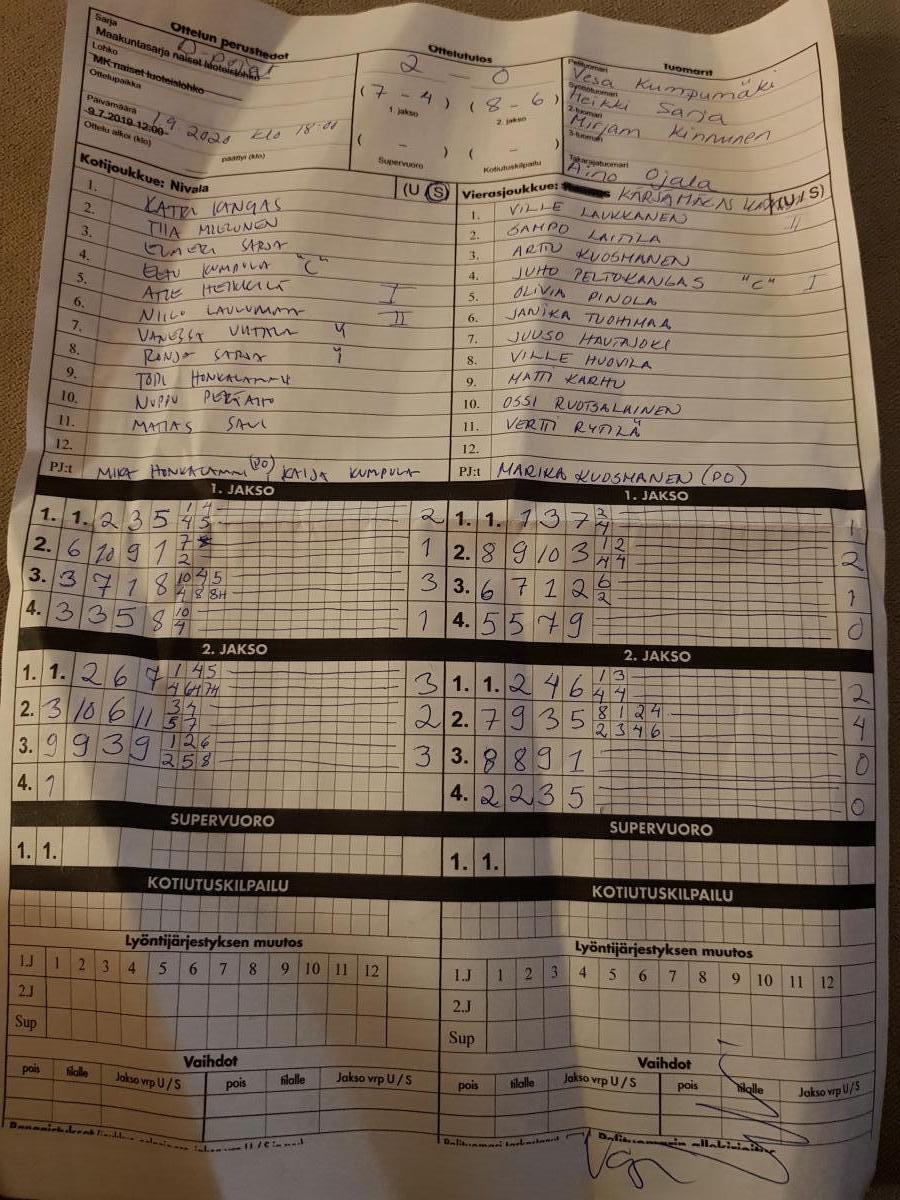 Sarja
Ottelun perustiedot
D-pojat
Maakuntasarja naiset luoteislohko
Lohko
MK naiset luoteislohko
Ottelupaikka
Päivämäärä
1.9 2020 klo 18:00
9.7.2019 12:00
Ottelu alkoi (klo)
päättyi (klo)
Ottelutulos
2 - 0
(7 - 4) (8 - 6)
1. jakso 2. jakso
( - ) ( - )
Supervuoro Kotiutuskilpailu
Tuomarit
Pelituomari
Vesa Kumpumäki
Syöttötuomari
Heikki Sarja
2-tuomari
Mirjam Kinnunen
3-tuomari
Takarajatuomari
Aino Ojala
Kotijoukkue: Nivala (U S)
1. KATRI KANGAS
2. TIIA MIELONEN
3. ELMERI SARJA
4. EETU KUMPULA "C"
5. ATTE HEIKKILÄ I
6. NIILO LAULUMAA II
7. VANESSA UUTALA
8. RONJA SARJA
9. TOPI HONKALAMMI
10. NUPPU PERTTAHO
11. MATIAS SAVI
12.
PJ:t MIKA HONKALAMMI (PO) KAIJA KUMPULA
Vierasjoukkue: KÄRSÄMÄEN (U S)
1. VILLE LAUKKANEN II
2. SAMPO LAITILA
3. ARTTU KUOSMANEN
4. JUHO PELTOKANGAS "C" I
5. OLIVIA PINOLA
6. JANIKA TUOHIMAA
7. JUUSO HAUTAJOKI
8. VILLE HUOVILA
9. MATTI KARHU
10. OSSI RUOTSALAINEN
11. VERTTI RYTILÄ
12.
PJ:t MARIKA KUOSMANEN (PO)
1. JAKSO
1. 1. 2 3 5 1 4 4 5 2
2. 6 10 9 1 7 2 1
3. 3 7 1 8 10 4 5 4 8 8H 3
4. 3 3 5 8 10 4 1
1. JAKSO
1. 1. 1 3 7 3 4 1
2. 8 9 10 3 1 2 4 4 2
3. 6 7 1 2 6 2 1
4. 5 5 7 9 0
2. JAKSO
1. 1. 2 6 7 1 4 5 4 6H 7H 3
2. 3 10 6 11 3 4 5 7 2
3. 9 9 3 9 1 2 6 2 5 8 3
4. 1
2. JAKSO
1. 1. 2 4 6 1 3 4 4 2
2. 7 9 3 5 8 1 2 4 2 3 4 6 4
3. 8 8 9 1 0
4. 2 2 3 5 0
SUPERVUORO
1. 1.
SUPERVUORO
1. 1.
KOTIUTUSKILPAILU
KOTIUTUSKILPAILU
Lyöntijärjestyksen muutos
1.J 1 2 3 4 5 6 7 8 9 10 11 12
2.J
Sup
Lyöntijärjestyksen muutos
1.J 1 2 3 4 5 6 7 8 9 10 11 12
2.J
Sup
Vaihdot
pois tilalle Jakso vrp U / S pois tilalle Jakso vrp U / S
Vaihdot
pois tilalle Jakso vrp U / S pois tilalle Jakso vrp U/S